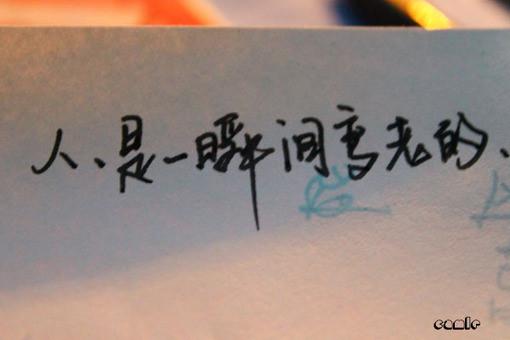 人、是一瞬间变老的、
comic